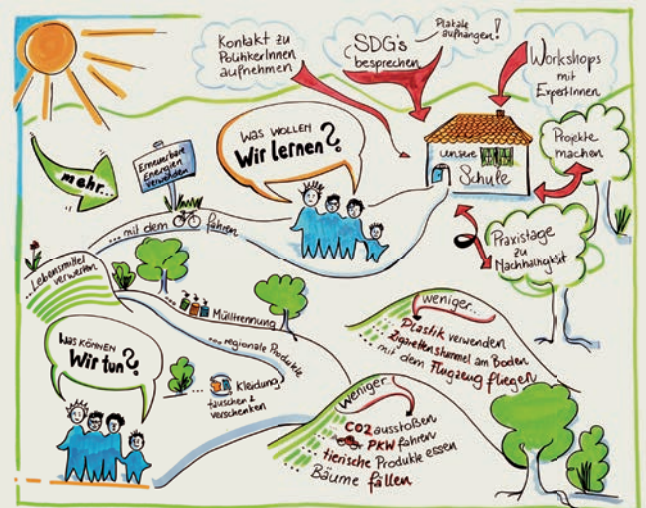 Kontakt zu
PolitikerInnen
aufnehmen
SDG's
besprechen
Plakate
aufhängen!
Workshops
mit
ExpertInnen
Projekte
machen
Praxistage
zu
Nachhaltigkeit
unsere
Schule
WAS WOLLEN
Wir lernen?
mehr...
Erneuerbare
Energien
verwenden
...mit dem
fahren
...Lebensmittel
verwerten
... Mülltrennung
... regionale Produkte
... Kleidung
tauschen &
verschenken
WAS KÖNNEN
Wir tun?
weniger...
Plastik verwenden
Zigarettenstummel am Boden
mit dem Flugzeug fliegen
weniger...
CO2 ausstoßen
PKW fahren
tierische Produkte essen
Bäume fällen